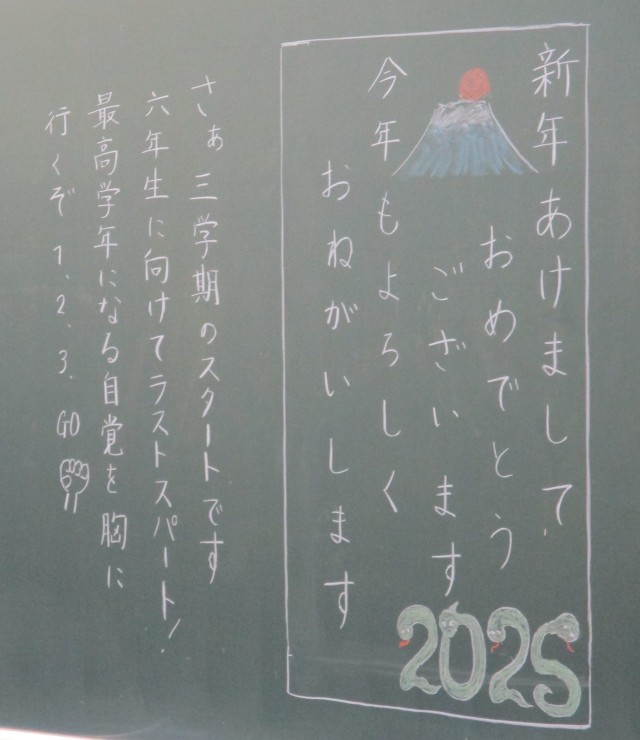 新年あけまして
おめでとう
ございます
今年もよろしく
おねがいします
2025
さぁ 三学期のスタートです
六年生に向けてラストスパート!
最高学年になる自覚を胸に
行くぞ 1. 2. 3. GO